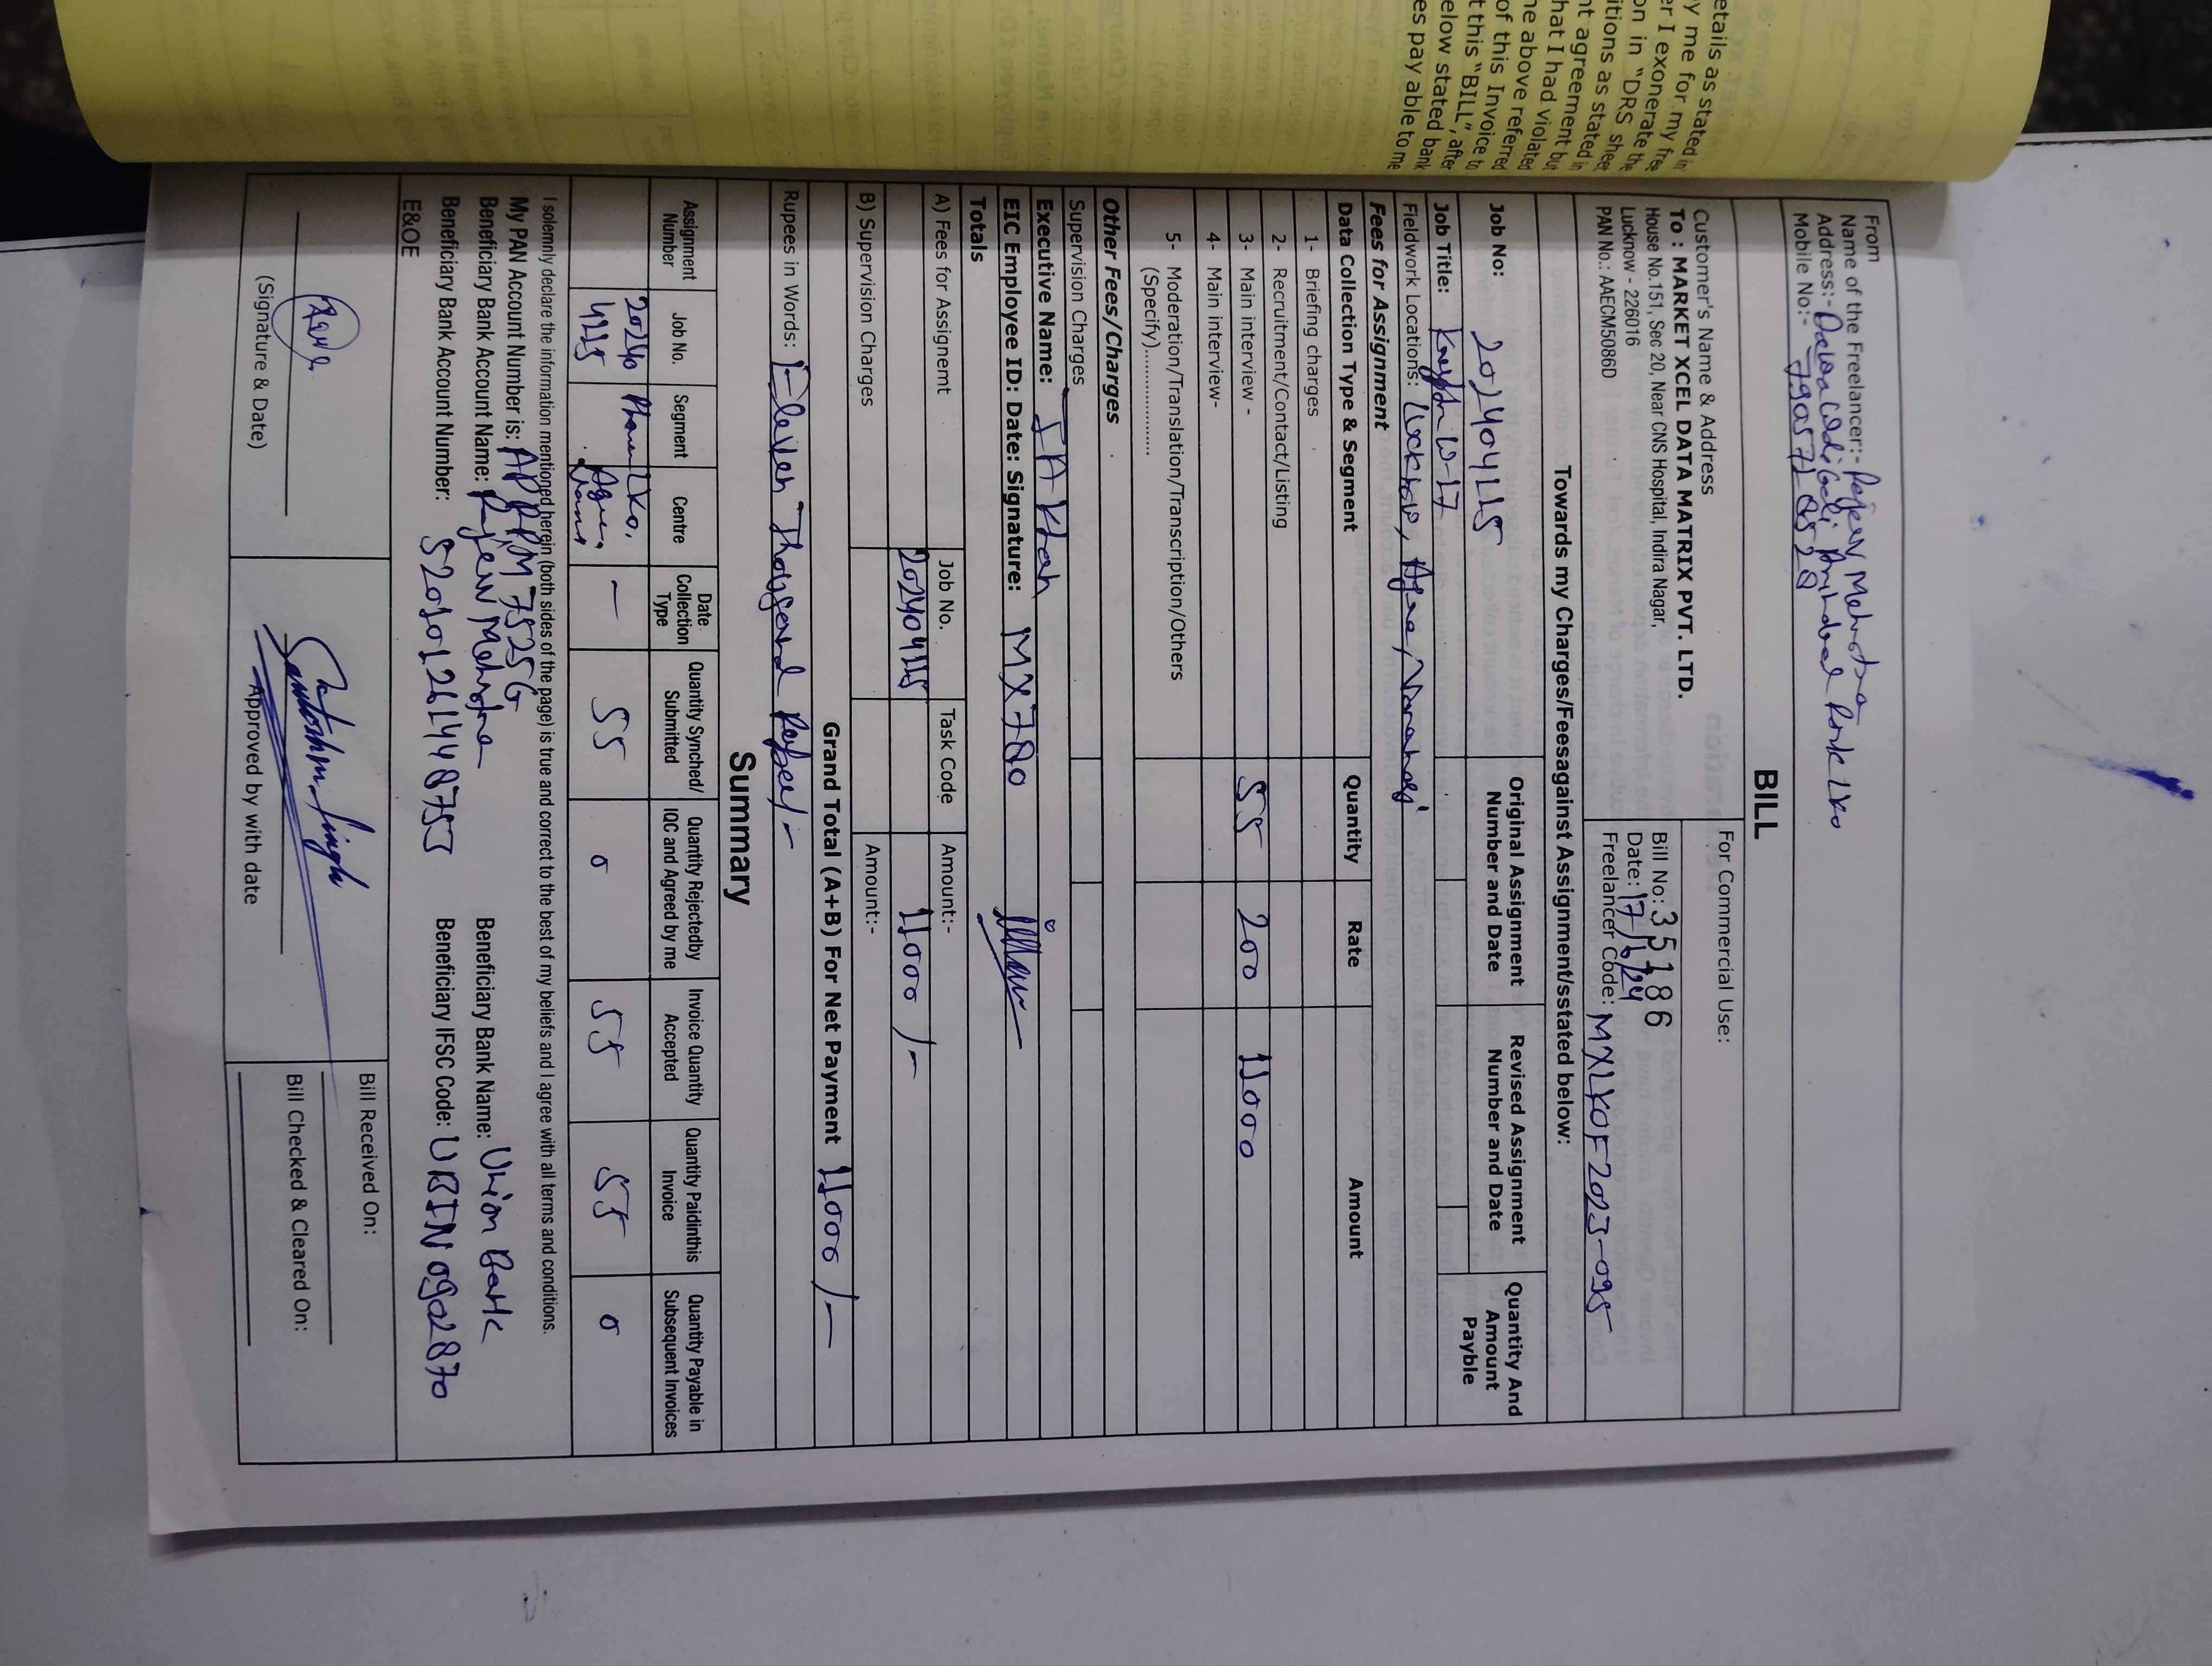 etails as stated in
y me for my free
er I exonerate the
on in "DRS shee
itions as stated
nt agreement but
hat I had violated
ne above referred
of this Invoice to
t this "BILL", after
elow stated bank
es pay able to me
From
Name of the Freelancer:- Rajeev Mehrotra
Address:- Park LKO
Mobile No:-
BILL
For Commercial Use:
Customer's Name & Address
To : MARKET XCEL DATA MATRIX PVT. LTD.
House No.151, Sec 20, Near CNS Hospital, Indira Nagar,
Lucknow - 226016
PAN No.: AAECM5086D
Bill No: 35186
Date: 17/6/24
Freelancer Code: MXLKOF2023-095
Towards my Charges/Feesagainst Assignment/sstated below:
Job No: 202404115
Original Assignment Number and Date
Revised Assignment Number and Date
Quantity And Amount Payble
Job Title: W-17
Fieldwork Locations: Lucknow, Agra, Varanasi
Fees for Assignment
Data Collection Type & Segment Quantity Rate Amount
1- Briefing charges
2- Recruitment/Contact/Listing
3- Main interview - 55 200 11000
4- Main interview-
5- Moderation/Translation/Transcription/Others
(Specify)................
Other Fees/Charges
Supervision Charges
Executive Name:
EIC Employee ID: Date: Signature: MX780
Totals
A) Fees for Assignemt Job No. Task Code Amount:-
202404115 11000/-
B) Supervision Charges Amount:-
Grand Total (A+B) For Net Payment 11000/-
Rupees in Words: Eleven Thousand Rupees/-
Summary
Assignment Number Job No. Segment Centre Date Collection Type Quantity Synched/ Submitted Quantity Rejectedby IQC and Agreed by me Invoice Quantity Accepted Quantity Paidinthis Invoice Quantity Payable in Subsequent Invoices
20240 LKO, — 55 0 55 55 0
4115 Agra,
I solemnly declare the information mentioned herein (both sides of the page) is true and correct to the best of my beliefs and I agree with all terms and conditions.
My PAN Account Number is: APPPM7525G
Beneficiary Bank Account Name: Rajeev Mehrotra Beneficiary Bank Name: Union Bank
Beneficiary Bank Account Number: 520101261448753 Beneficiary IFSC Code: UBIN0902870
E&OE
Santosh Singh
Bill Received On:
(Signature & Date) Approved by with date Bill Checked & Cleared On: